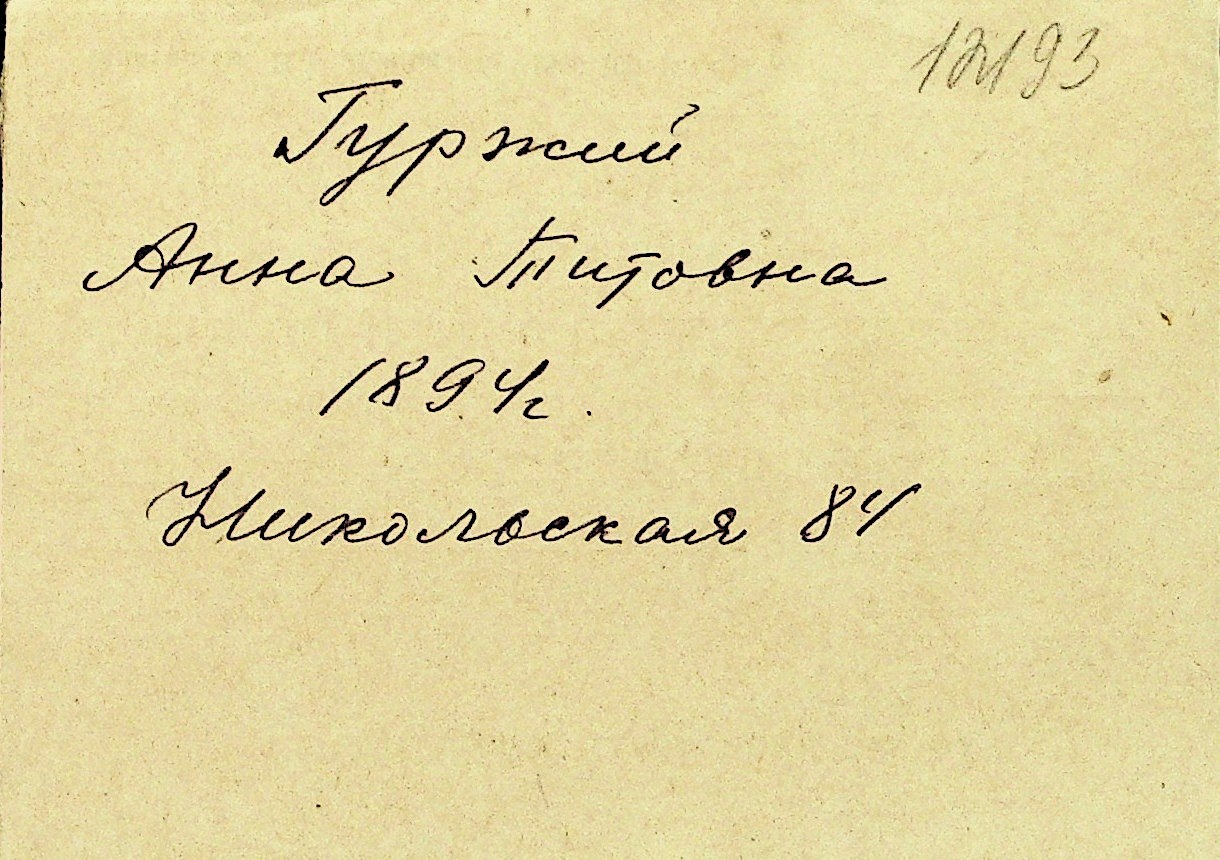 12193
Гуржий
Анна Титовна
1894г.
Никольская 84